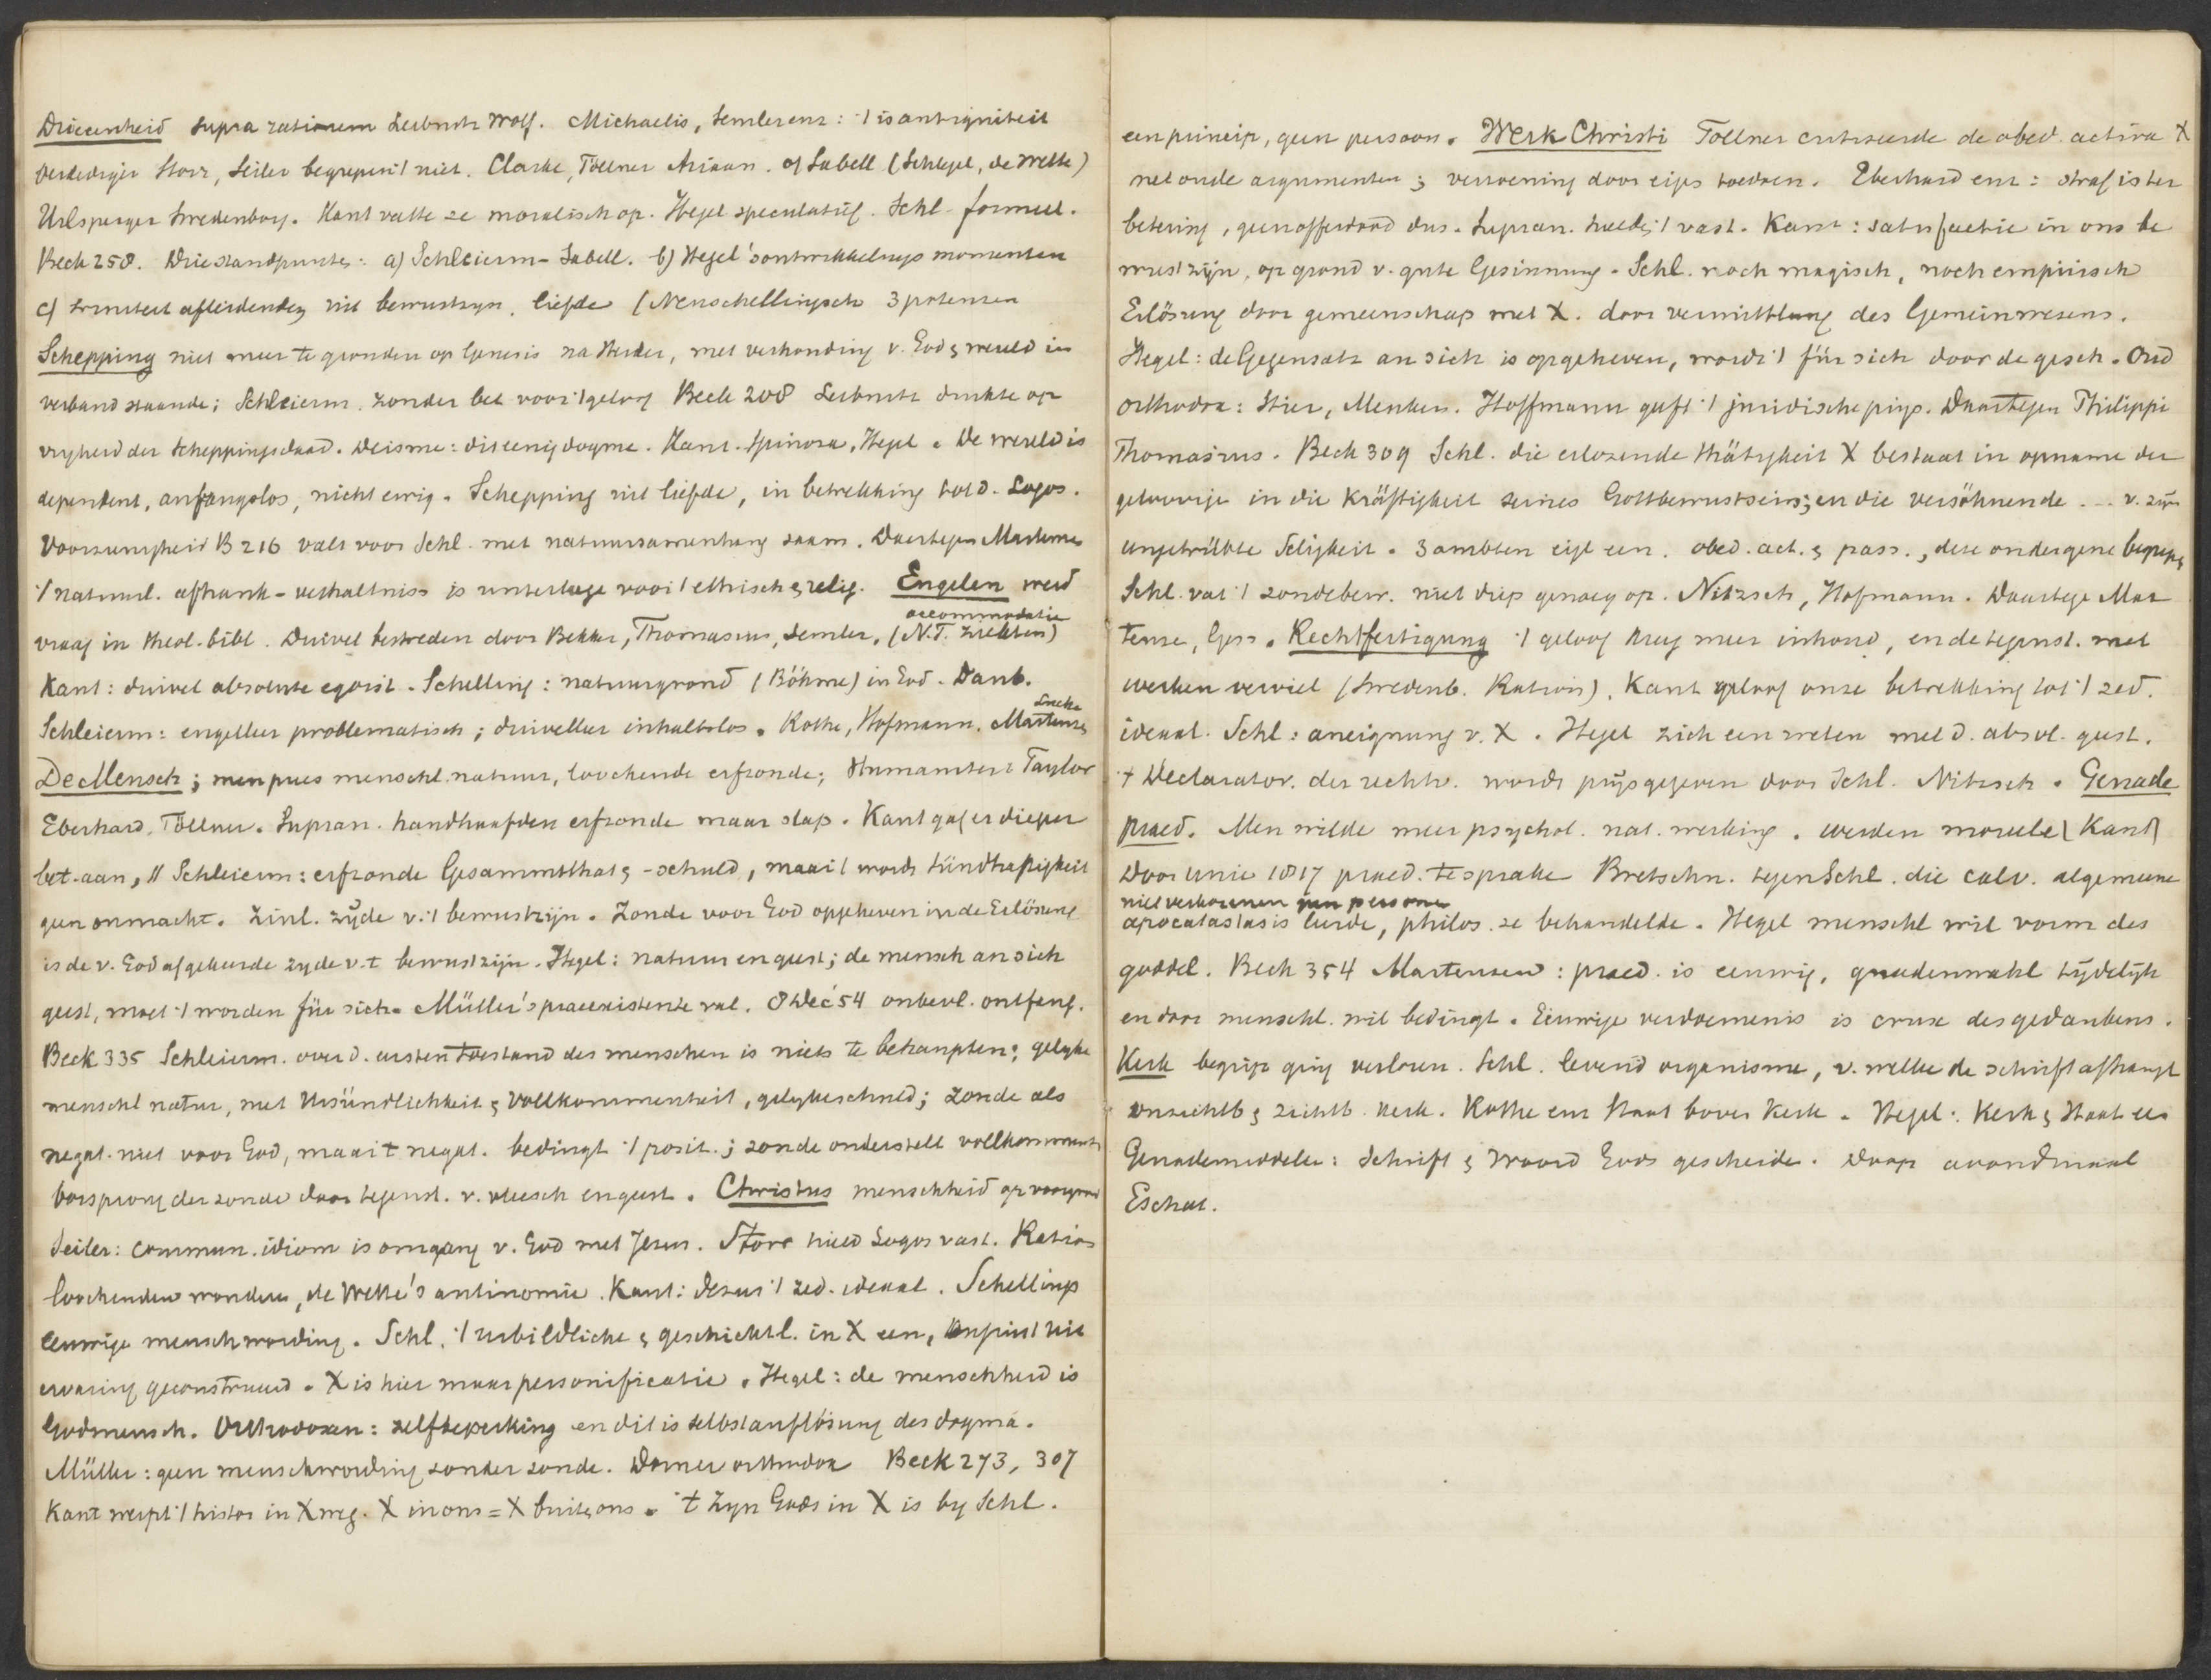 Drieeenheid supra rationem Leibnitz Wolf. Michaelis, Semler enz: 't is antiquiteit
verdediger Storr, Seiler begrepen 't niet. Clarke, Töllner Ariaan. of Sabell (Schlegel, de Wette)
Urlsperger Swedenborg. Kant vatte ze moralisch op. Hegel speculatief. Schl. formeel.
Beck 258. Drie standpunten: a) Schleierm - Sabell. b) Hegel's ontwikkelings momenten
c) triniteit afleidende uit bewustzijn, liefde (Neuschellingsch 3 potenzen
Schepping niet meer te gronden op Genesis na Herder, met verhouding v. God & wereld in
verband staande; Schleierm. zonder bet voor 't geloof Beck 208 Leibnitz drukte op
vryheid der scheppingsdaad. Deisme: dit eenig dogme. Kant. Spinoza, Hegel. De wereld is
dependent, anfangslos, nicht ewig. Schepping uit liefde, in betrekking tot d. Logos.
Voorzienigheid B 216 valt voor Schl. met natuursamenhang saam. Daartegen Martensen
't natuurl. afhank- verhaltniss is unterlage voor 't ethisch & relig. Engelen werd
vraag in theol. bibl. Duivel bestreden door Bekker, Thomasius, Semler, (N.T. ziekten)
accommodatie
Kant: duivel absolute egoist. Schelling: natuurgrond (Böhme) in God. Daub.
Schleierm: engelleer problematisch; duivelleer inhaltslos. Rothe, Hofmann. Martensen
Lücke
De Mensch; men prees menschl. natuur, loochende erfzonde; Humaniteit Taylor
Eberhard, Töllner. Supran. handhaafden erfzonde maar slap. Kant gaf er dieper
bet. aan, Schleierm: erfzonde Gesammtthat & -schuld, maar 't wordt Sündhaftigkeit
geen onmacht. Zinl. zijde v. 't bewustzijn. Zonde voor God opgeheven in de Erlösung
is de v. God afgekeerde zyde v. 't bewustzijn. Hegel: natuur en geest; de mensch an sich
geest, moet 't worden für sich. Müller's praeexistente val. 8 Dec '54 onbevl. ontfang.
Beck 335 Schleierm. over d. eersten toestand des menschen is niets te behaupten; gelyke
menschl. natuur, met Unsündlichkeit & Vollkommenheit, ; zonde als
negat. niet voor God, maar 't negat. bedingt 't posit.; zonde onderstelt vollkommenh
oorsprong der zonde door tegenst. v. vleesch en geest. Christus menschheid op voorgrond
Seiler: commun. idiom is omgang v. God met Jezus. Storr hield Logos vast. Ration
loochenden wonderen, de Wette's antinomie. Kant: Jezus 't zed. ideaal. Schellings
eeuwige menschwording. Schl. 't urbildliche & geschichtl. in X een, uit
ervaring geconstrueerd. X is hier maar personificatie. Hegel: de menschheid is
Godmensch. Orthodoxen: zelfbeperking en dit is selbstauflösung des dogma.
Müller: geen menschwording zonder zonde. Dorner orthodox Beck 273, 307
Kant werpt 't histor in X weg. X in ons = X buiten ons. 't Zyn Gods in X is by Schl.
een princip, geen persoon. Werk Christi Töllner critiseerde de obed. activa X
met oude argumenten; verzoening door eigen toedoen. Eberhard enz: straf is ter
betering, geen offerdood dus. Supran. hielden 't vast. Kant: satisfactie in ons be
wustzijn, op grond v. gute Gesinnung. Schl. noch magisch, noch empirisch
Erlösung door gemeenschap met X. door vermittlung des Gemeinwesens.
Hegel: de Gegensatz an sich is opgeheven, wordt 't für sich door de gesch. Oud
orthodox: Stier, Menken. Hoffmann geeft 't juridische prijs. Daartegen Philippi
Thomasius. Beck 309 Schl. die erlozende thätigkeit X bestaat in opname der
geloovige in die Kräftigkeit seines Gottbewustseins; en die versöhnende ... v. zijn
ungetrübte Seligkeit. 3 ambten eigl een. obed. act. & pass., deze ondergene begrepen
Schl. vat 't zondebew. niet diep genoeg op. Nitzsch, Hofmann. Daartege Mar
tense, Gess. Rechtfertigung 't geloof kreeg meer inhoud, en de tegenst. met
werken verviel (Swedenb. Ration). Kant geloof onze betrekking tot 't zed.
ideaal. Schl: aneignung v. X. Hegel zich een weten met d. absol. geest.
't Declarator. der rechtv. wordt prijsgegeven door Schl. Nitzsch. Genade
praed. Men wilde meer psychol. nat. werking. werden moreele (Kant)
Door unie 1817 praed. te sprake Bretschn. tegen Schl. die calv. algemeene
niet verkorenen geen personen
apocatastasis leerde, philos. ze behandelde. Hegel menschl wil vorm des
goddel. Beck 354 Martensen: praed. is eeuwig, gnadenwahl tijdelijk
en door menschl. wil bedingt. Eeuwige verdoemenis is crux des gedankens.
Kerk begrip ging verloren. Schl. levend organisme, v. welke de schrift afhangt
onzichtb & zichtb. kerk. Rothe enz Staat boven Kerk. Hegel: Kerk & Staat een
Genademiddelen: Schrift & Woord Gods gescheide. Doop avondmaal
Eschat.